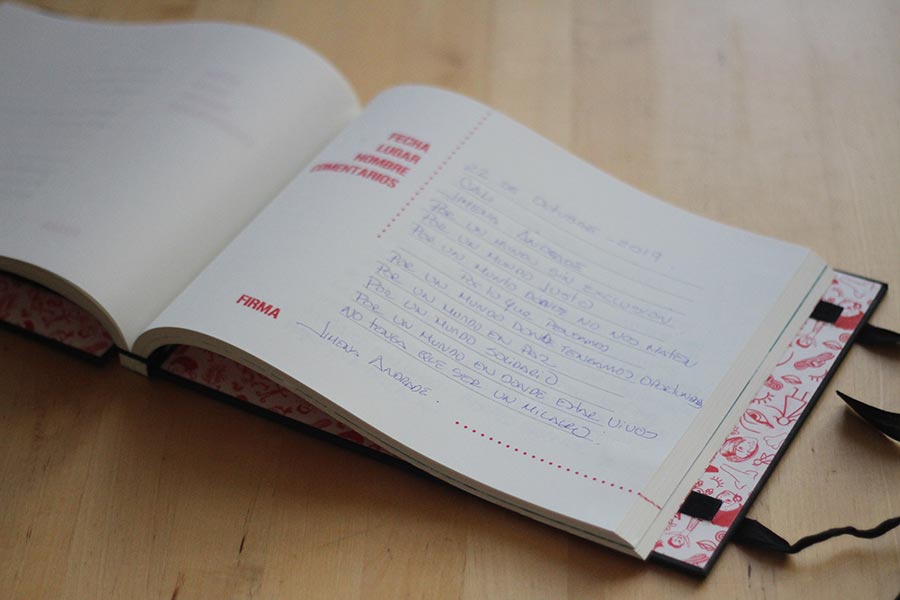 FECHA
LUGAR
NOMBRE
COMENTARIOS
22 DE OCTUBRE - 2019.
CALI
JIMENA ANDRADE
POR UN MUNDO SIN EXCLUSION
POR UN MUNDO JUSTO
POR UN MUNDO DONDE NO NOS MATEN
POR LO QUE PENSAMOS
POR UN MUNDO DONDE TENGAMOS OPORTUNIDADES
POR UN MUNDO EN PAZ
POR UN MUNDO SOLIDARIO
POR UN MUNDO EN DONDE ESTAR VIVOS
NO TENGA QUE SER UN MILAGRO.
JIMENA ANDRADE.
FIRMA